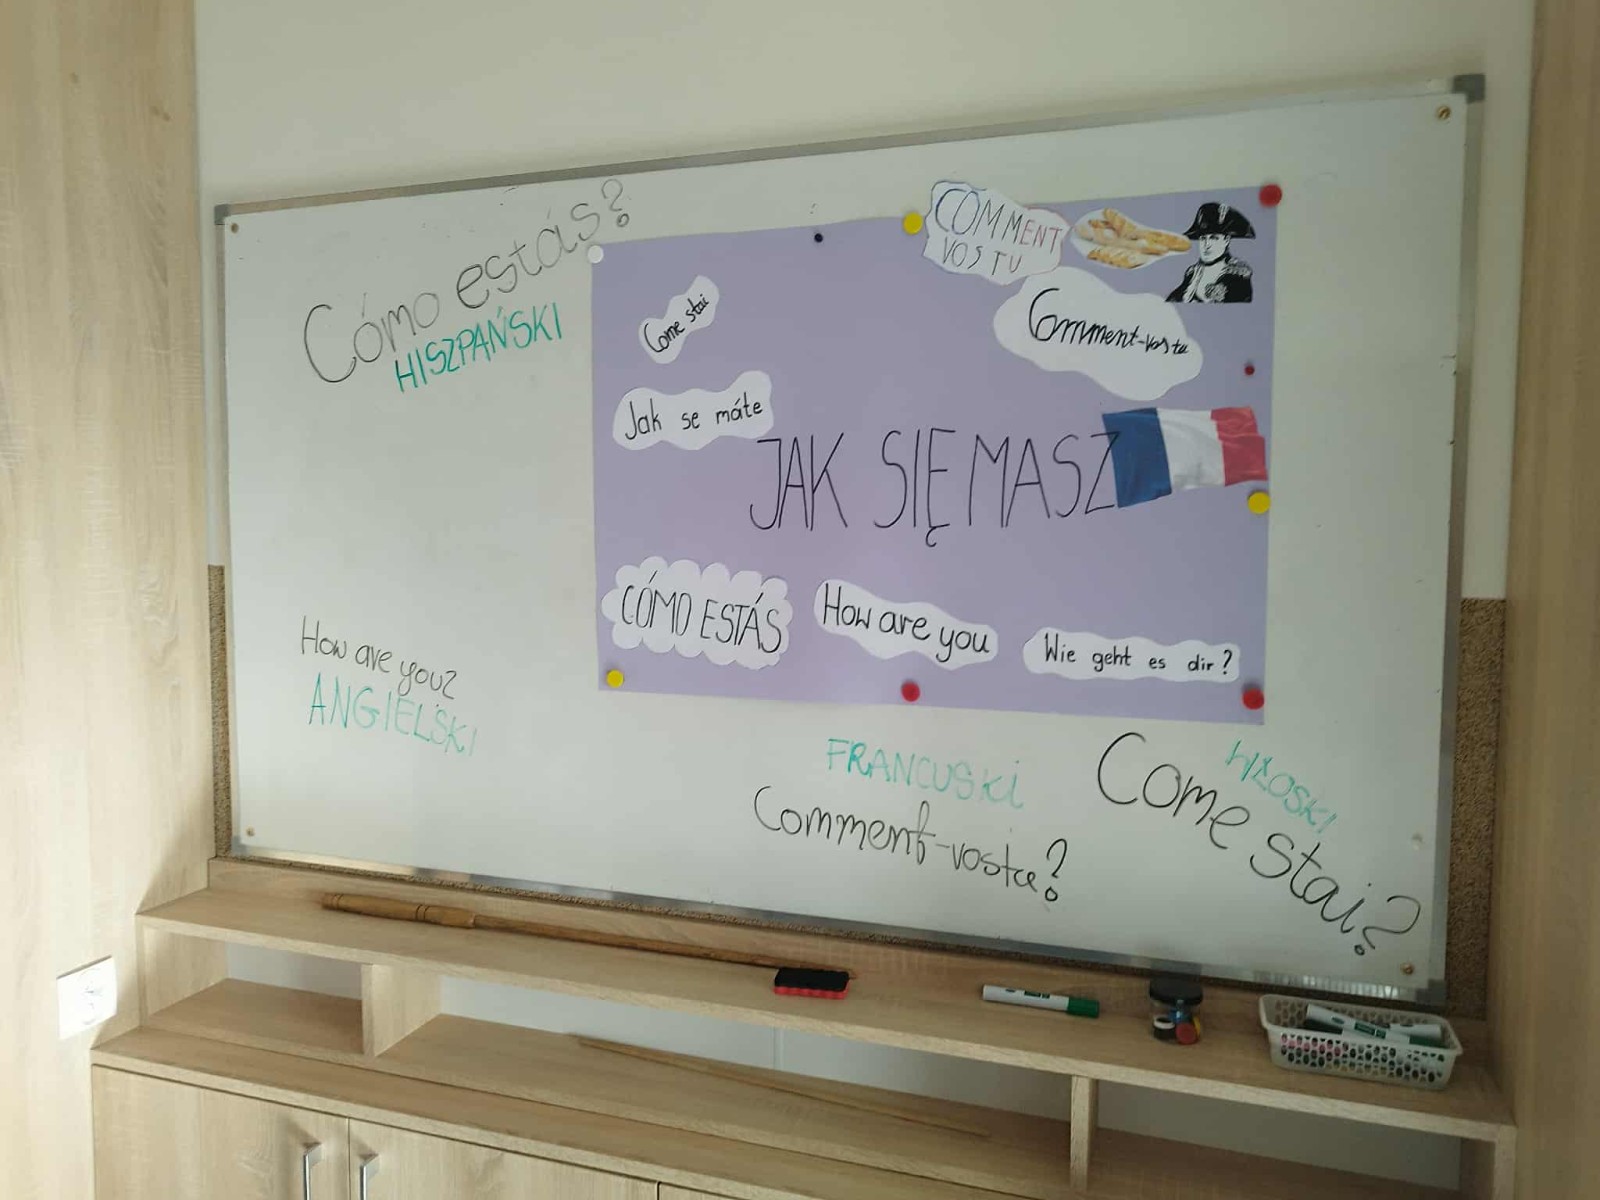 Cómo estás?
HISZPAŃSKI
COMMENT
VOS TU
Come stai
Comment-vos tu
Jak se máte
JAK SIĘ MASZ
CÓMO ESTÁS
How are you
Wie geht es dir?
How are you?
ANGIELSKI
FRANCUSKI
Comment-vostu?
WŁOSKI
Come stai?